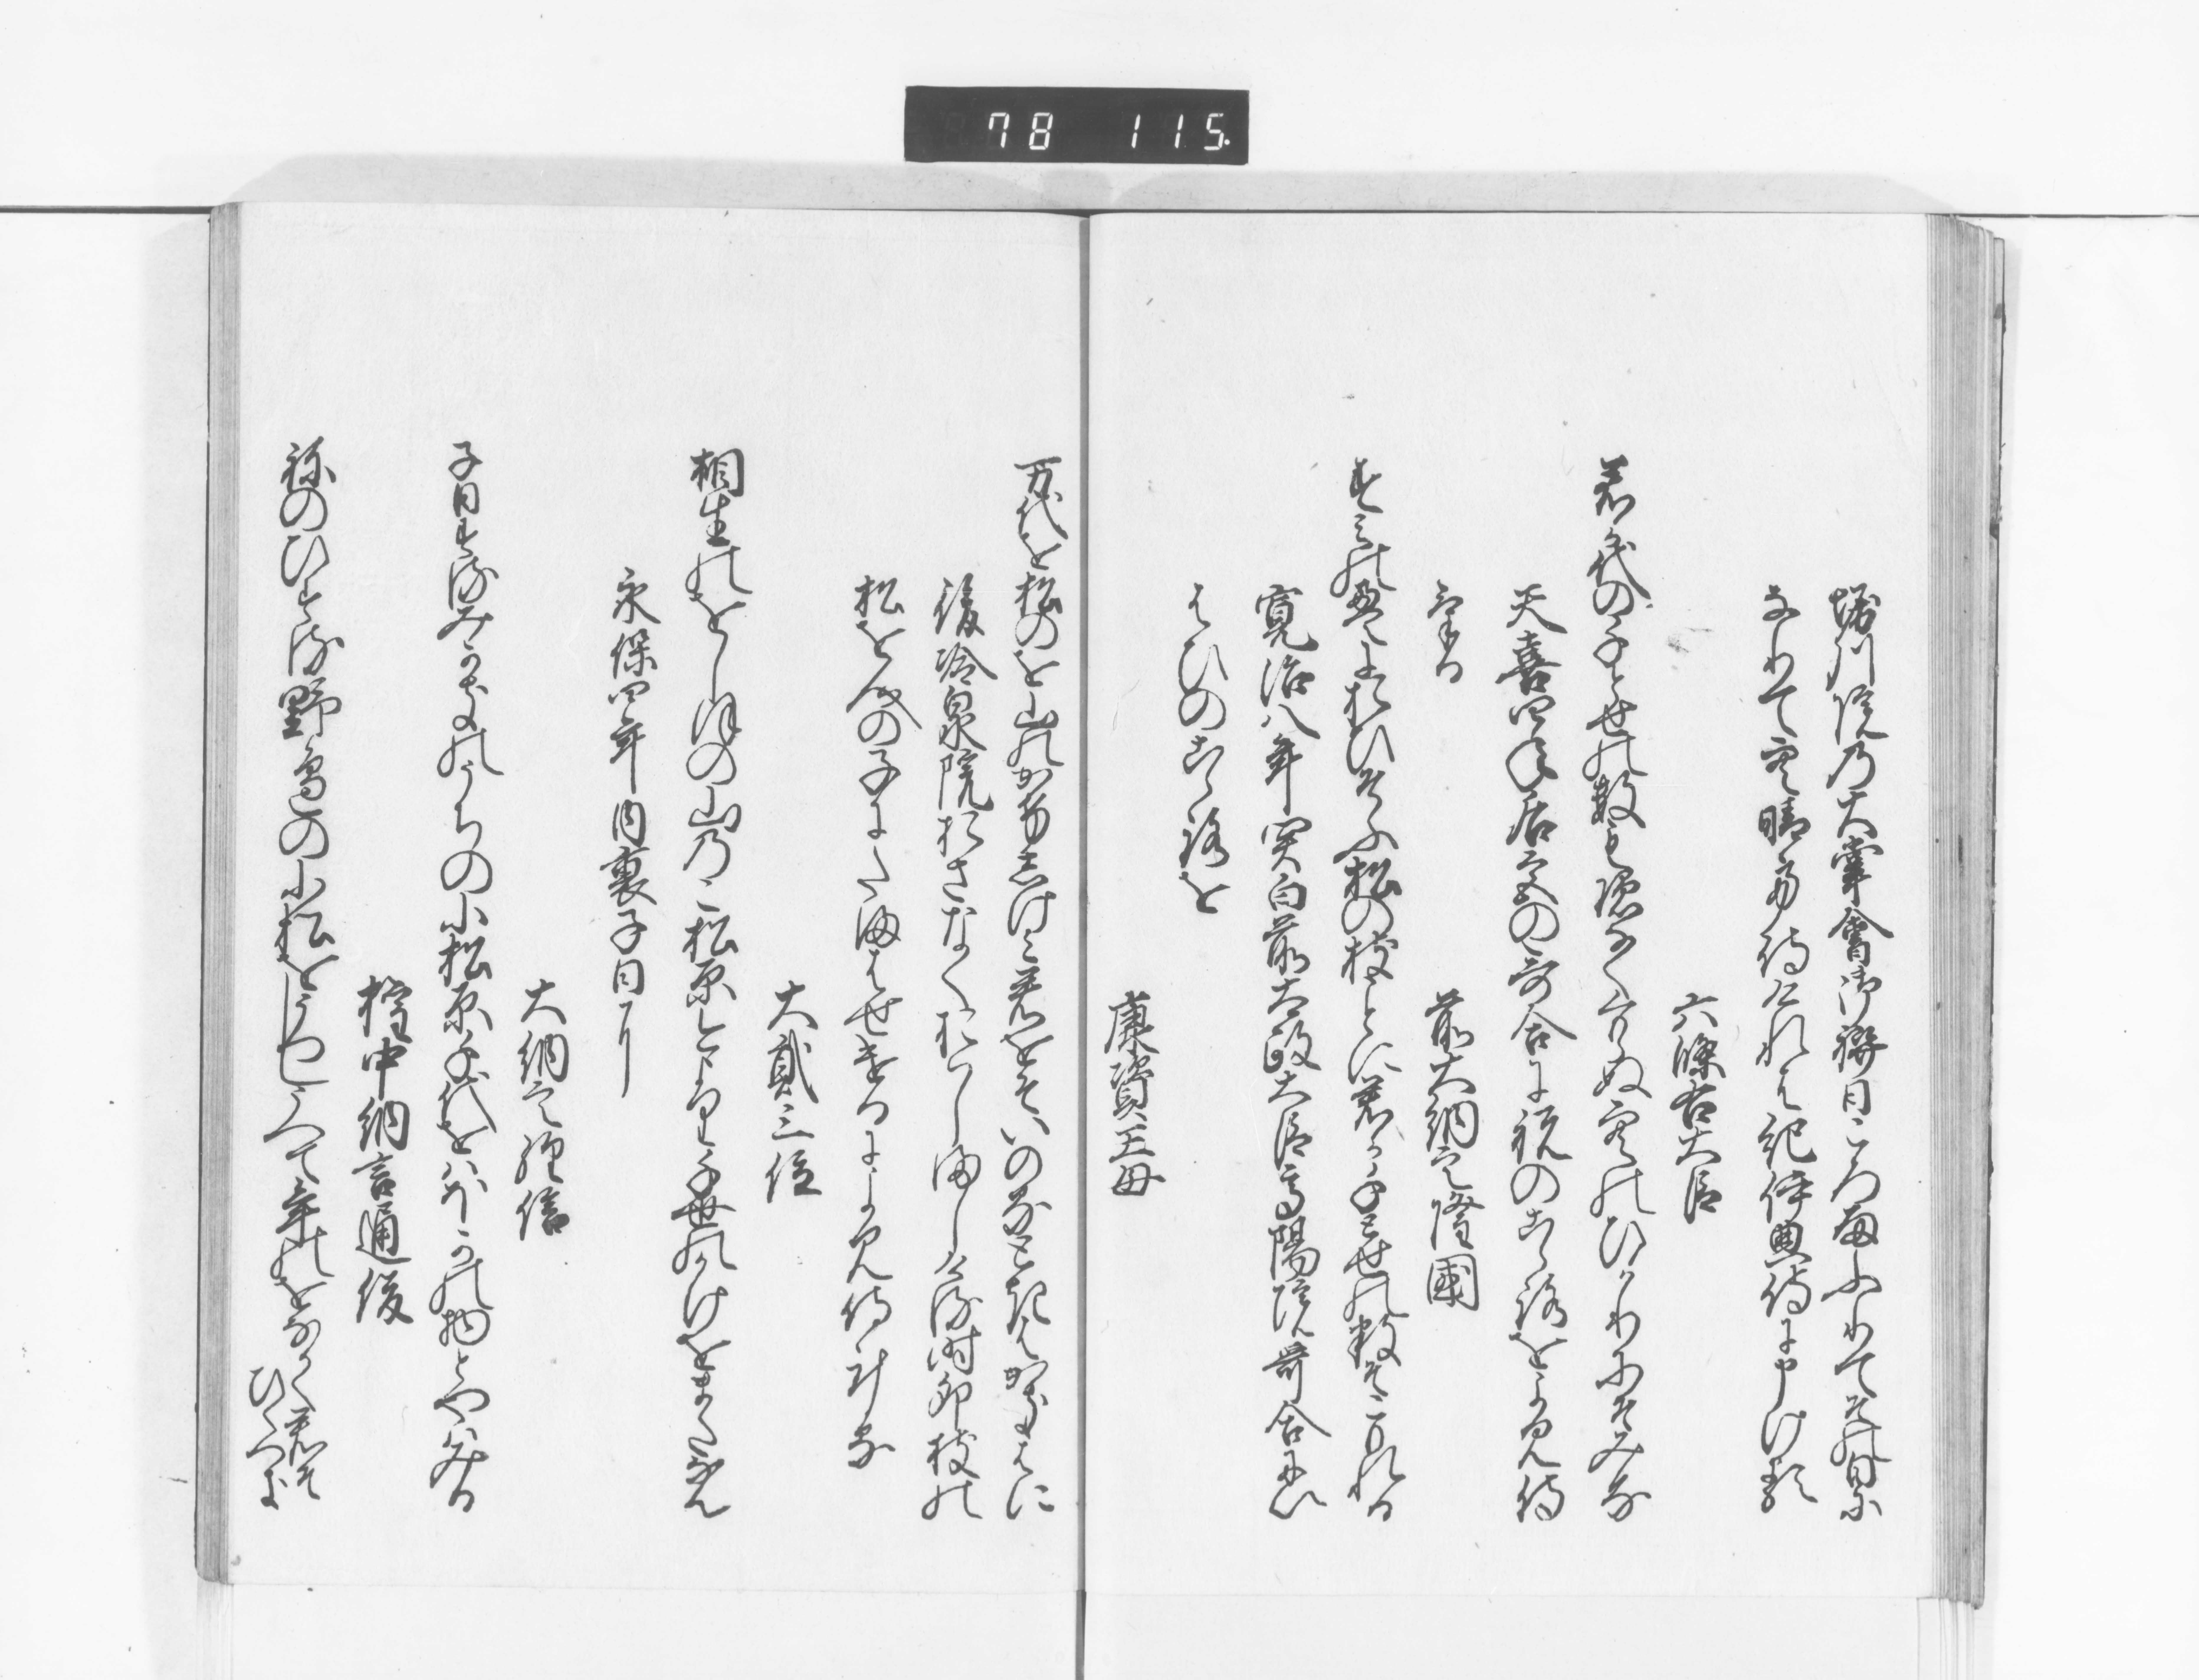 78 115.
堀川院乃大嘗會御禊日ころ雨ふりてその日に
なりて空晴て侍けれは紀伊典侍に申ける
六條右大臣
君か代の千とせの數もかくれなくくもらぬ空のひかりにそみる
天喜四年后宮の哥合に祝のこゝろをよみ侍
ける
前大納言隆國
すみの江におひそふ松の枝ことに君か千とせの数そこもれる
寛治八年関白前太政大臣高陽院哥合にい
はひのこゝろを
康資王母
万代を松のを山のかけしけみ君をそいのるときはかきはに
後冷泉院おさなくおはしましける時卯杖の
松を人の子にたまはせけるによみ侍ける
大貳三位
相生のをしほの山乃こ松原いまより千世のかけをまたなん
永保四年内裏子日に
大納言経信
子日するみかきのうちの小松原千代をはほかの物とやはみる
権中納言通俊
ねのひする野邊の小松をうつしうへて年のをなかく君そ
ひくへき